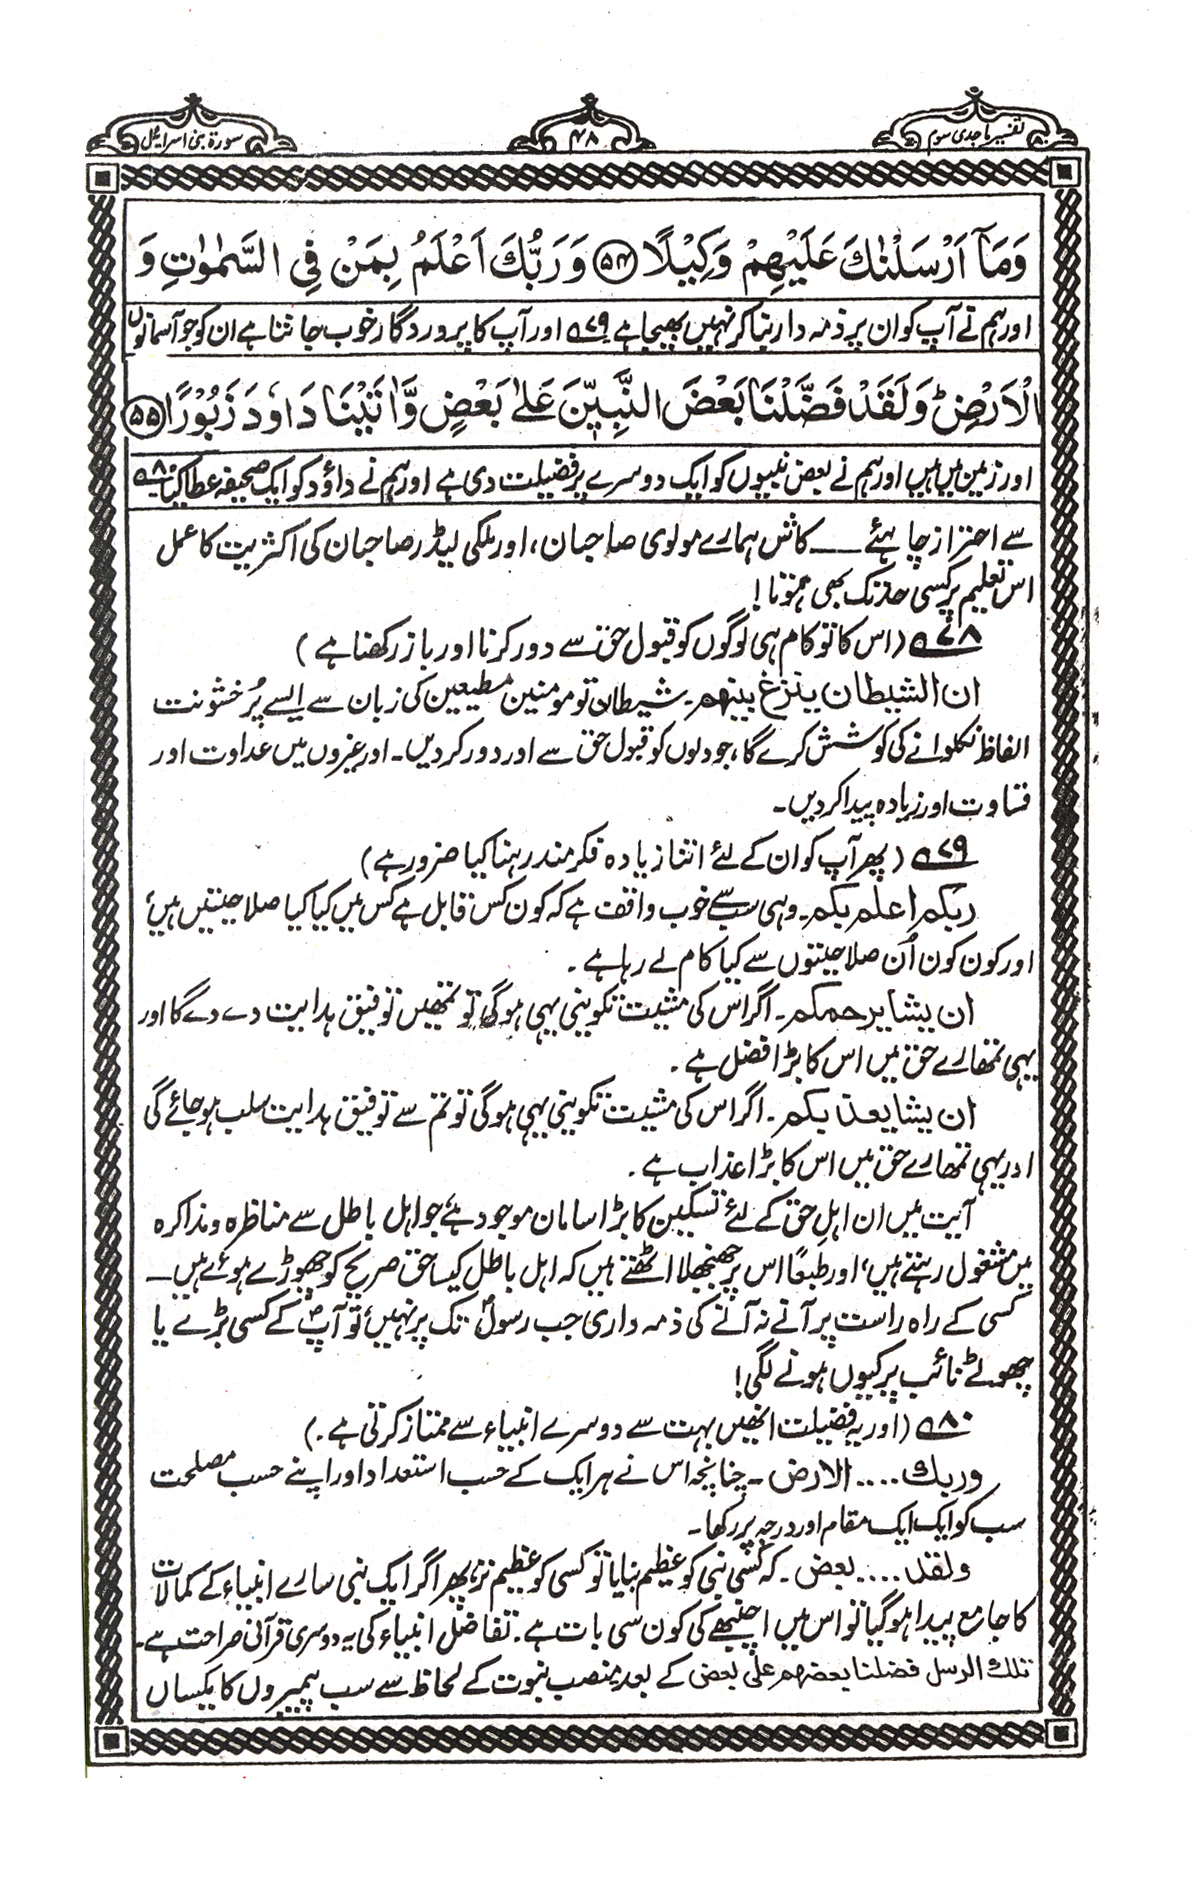 تفسیر ماجدی سوم
۴۸
سورۃ بنی اسرایٔل
وَمَآ اَرْسَلْنٰكَ عَلَيْهِمْ وَكِيْلًا ﴿۵۴﴾ وَرَبُّكَ اَعْلَمُ بِمَنْ فِي السَّمٰوٰتِ وَ
اور ہم نے آپ کو ان پر ذمہ دار بنا کر نہیں بھیجا ہے ۷۹؎ اور آپ کا پروردگار خوب جانتا ہے ان کو جو آسمانوں
الْاَرْضِ ؕ وَلَقَدْ فَضَّلْنَا بَعْضَ النَّبِيّٖنَ عَلٰى بَعْضٍ وَّاٰتَيْنَا دَاوٗدَ زَبُوْرًا ﴿۵۵﴾
اور زمین میں ہیں اور ہم نے بعض نبیوں کو ایک دوسرے پر فضیلت دی ہے اور ہم نے داؤد کو ایک صحیفہ عطا کیا ۸۰؎
سے احتراز چاہئے ــــ کاش ہمارے مولوی صاحبان، اور ملکی لیڈر صاحبان کی اکثریت کا عمل
اس تعلیم پر کسی حد تک بھی ہوتا!
۷۸؎ (اس کا تو کام ہی لوگوں کو قبول حق سے دور کرنا اور باز رکھنا ہے)
ان الشیطان ینزغ بینھم۔ شیطان تو مومنین مطیعین کی زبان سے ایسے پُر خشونت
الفاظ نکلوانے کی کوشش کرے گا، جو دلوں کو قبول حق سے اور دور کر دیں۔ اور غیروں میں عداوت اور
قساوت اور زیادہ پیدا کر دیں۔
۷۹؎ (پھر آپ کو ان کے لئے اتنا زیادہ فکر مند رہنا کیا ضرور ہے)
ربکم اعلم بکم۔ وہی سب سے خوب واقف ہے کہ کون کس قابل ہے کس میں کیا کیا صلاحیتیں ہیں،
اور کون کون اُن صلاحیتوں سے کیا کام لے رہا ہے۔
ان یشا یرحمکم۔ اگر اس کی مشیت تکوینی یہی ہوگی تو تمھیں توفیق ہدایت دے دے گا اور
یہی تمھارے حق میں اس کا بڑا فضل ہے۔
ان یشا یعذبکم۔ اگر اس کی مشیت تکوینی یہی ہوگی تو تم سے توفیق ہدایت سلب ہو جائے گی
اور یہی تمھارے حق میں اس کا بڑا عذاب ہے۔
آیت میں ان اہلِ حق کے لئے تسکین کا بڑا سامان موجود ہے، جو اہل باطل سے مناظرہ و مذاکرہ
میں مشغول رہتے ہیں، اور طبعًا اس پر جھنجھلا اٹھتے ہیں کہ اہل باطل کیسا حق صریح کو چھوڑے ہوئے ہیں ــ
کسی کے راہ راست پر آنے نہ آنے کی ذمہ داری جب رسولؐ تک پر نہیں، تو آپؐ کے کسی بڑے یا
چھوٹے نائب پر کیوں ہونے لگی!
۸۰؎ (اور یہ فضیلت انھیں بہت سے دوسرے انبیاء سے ممتاز کرتی ہے۔)
وربک .... الارض۔ چنانچہ اس نے ہر ایک کے حسب استعداد اور اپنے حسب مصلحت
سب کو ایک ایک مقام اور درجہ پر رکھا۔
ولقد .... بعض۔ کہ کسی نبی کو عظیم بنایا تو کسی کو عظیم تر، پھر اگر ایک نبی سارے انبیاء کے کمالات
کا جامع پیدا ہو گیا تو اس میں اچنبھے کی کون سی بات ہے۔ تفاضل انبیاء کی یہ دوسری قرآنی صراحت ہے۔
تلک الرسل فضلنا بعضھم علی بعض کے بعد، منصب نبوت کے لحاظ سے سب پیمبروں کا یکساں